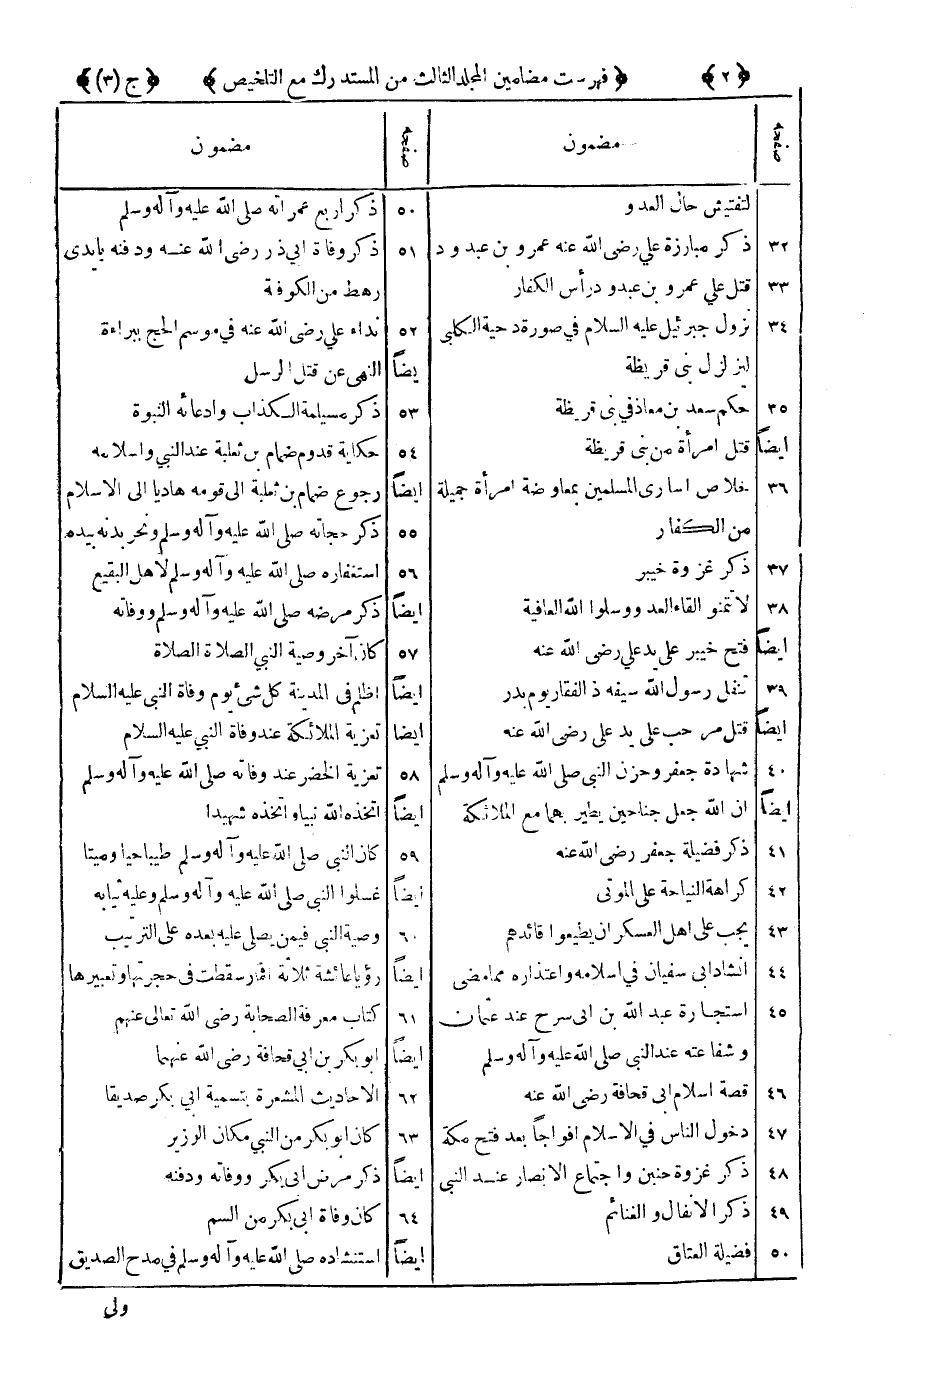 ﴿ ٢ ﴾ ﴿ فهرست مضامين المجلد الثالث من المستدرك مع التلخيص ﴾ ﴿ ج (٣) ﴾
صفحه مضمون
لتفتيش حال العدو
٣٢ ذكر مبارزة علي رضى الله عنه عمرو بن عبدود
٣٣ قتل علي عمرو بن عبدود رأس الكفار
٣٤ نزول جبرئيل عليه السلام في صورة دحية الكلبي
ليزلزل بنى قريظة
٣٥ حكم سعد بن معاذ في بنى قريظة
ايضاً قتل امرأة من بنى قريظة
٣٦ خلاص اسارى المسلمين بمعاوضة امرأة جميلة
من الكفار
٣٧ ذكر غزوة خيبر
٣٨ لا تمنو القاء العدو وسلوا الله العافية
ايضاً فتح خيبر على يد علي رضى الله عنه
٣٩ تنفل رسول الله سيفه ذا لفقار يوم بدر
ايضاً قتل مرحب على يد على رضى الله عنه
٤٠ شهادة جعفر وحزن النبى صلى الله عليه وآله وسلم
ايضاً ان الله جعل جناحين يطير بهما مع الملائكة
٤١ ذكر فضيلة جعفر رضى الله عنه
٤٢ كراهة النياحة على الموتى
٤٣ يجب على اهل العسكر ان يطيعوا قائدهم
٤٤ انشاد ابى سفيان في اسلامه واعتذاره مما مضى
٤٥ استجارة عبد الله بن ابى سرح عند عثمان
وشفاعته عند النبى صلى الله عليه وآله وسلم
٤٦ قصة اسلام ابى قحافة رضى الله عنه
٤٧ دخول الناس في الاسلام افواجاً بعد فتح مكة
٤٨ ذكر غزوة حنين واجتماع الانصار عند النبى
٤٩ ذكر الانفال والغنائم
٥٠ فضيلة العتاق
صفحه مضمون
٥٠ ذكر اربع عمراته صلى الله عليه وآله وسلم
٥١ ذكر وفاة ابي ذر رضى الله عنه ودفنه بايدى
رهط من الكوفة
٥٢ نداء علي رضى الله عنه في موسم الحج ببراءة
يضاً النهى عن قتل الرسل
٥٣ ذكر مسيلمة الكذاب وادعائه النبوة
٥٤ حكاية قدوم ضمام بن ثعلبة عند النبي واسلامه
ايضاً رجوع ضمام بن ثعلبة الى قومه هاديا الى الاسلام
٥٥ ذكر حجاته صلى الله عليه وآله وسلم ونحر بدنه بيده
٥٦ استغفاره صلى الله عليه وآله وسلم لاهل البقيع
ايضاً ذكر مرضه صلى الله عليه وآله وسلم ووفاته
٥٧ كان آخر وصية النبي الصلاة الصلاة
ايضاً اظلم في المدينة كل شئ يوم وفاة النبى عليه السلام
ايضا تعزية الملائكة عند وفاة النبي عليه السلام
٥٨ تعزية الخضر عند وفاته صلى الله عليه وآله وسلم
ايضاً اتخذه الله نبيا واتخذه شهيدا
٥٩ كان النبي صلى الله عليه وآله وسلم طيبا حيا وميتا
ايضاً غسلوا النبي صلى الله عليه وآله وسلم وعليه ثيابه
٦٠ وصية النبي فيمن يصلى عليه بعده على الترتيب
ايضاً رؤيا عائشة ثلاثة اقمار سقطت في حجرتها وتعبيرها
٦١ كتاب معرفة الصحابة رضى الله تعالى عنهم
ايضاً ابو بكر بن ابي قحافة رضى الله عنهما
٦٢ الاحاديث المشعرة بتسمية ابي بكر صديقا
٦٣ كان ابو بكر من النبي مكان الوزير
ايضاً ذكر مرض ابى بكر ووفاته ودفنه
٦٤ كان وفاة ابى بكر من السم
ايضاً استنشاده صلى الله عليه وآله وسلم في مدح الصديق
ولى